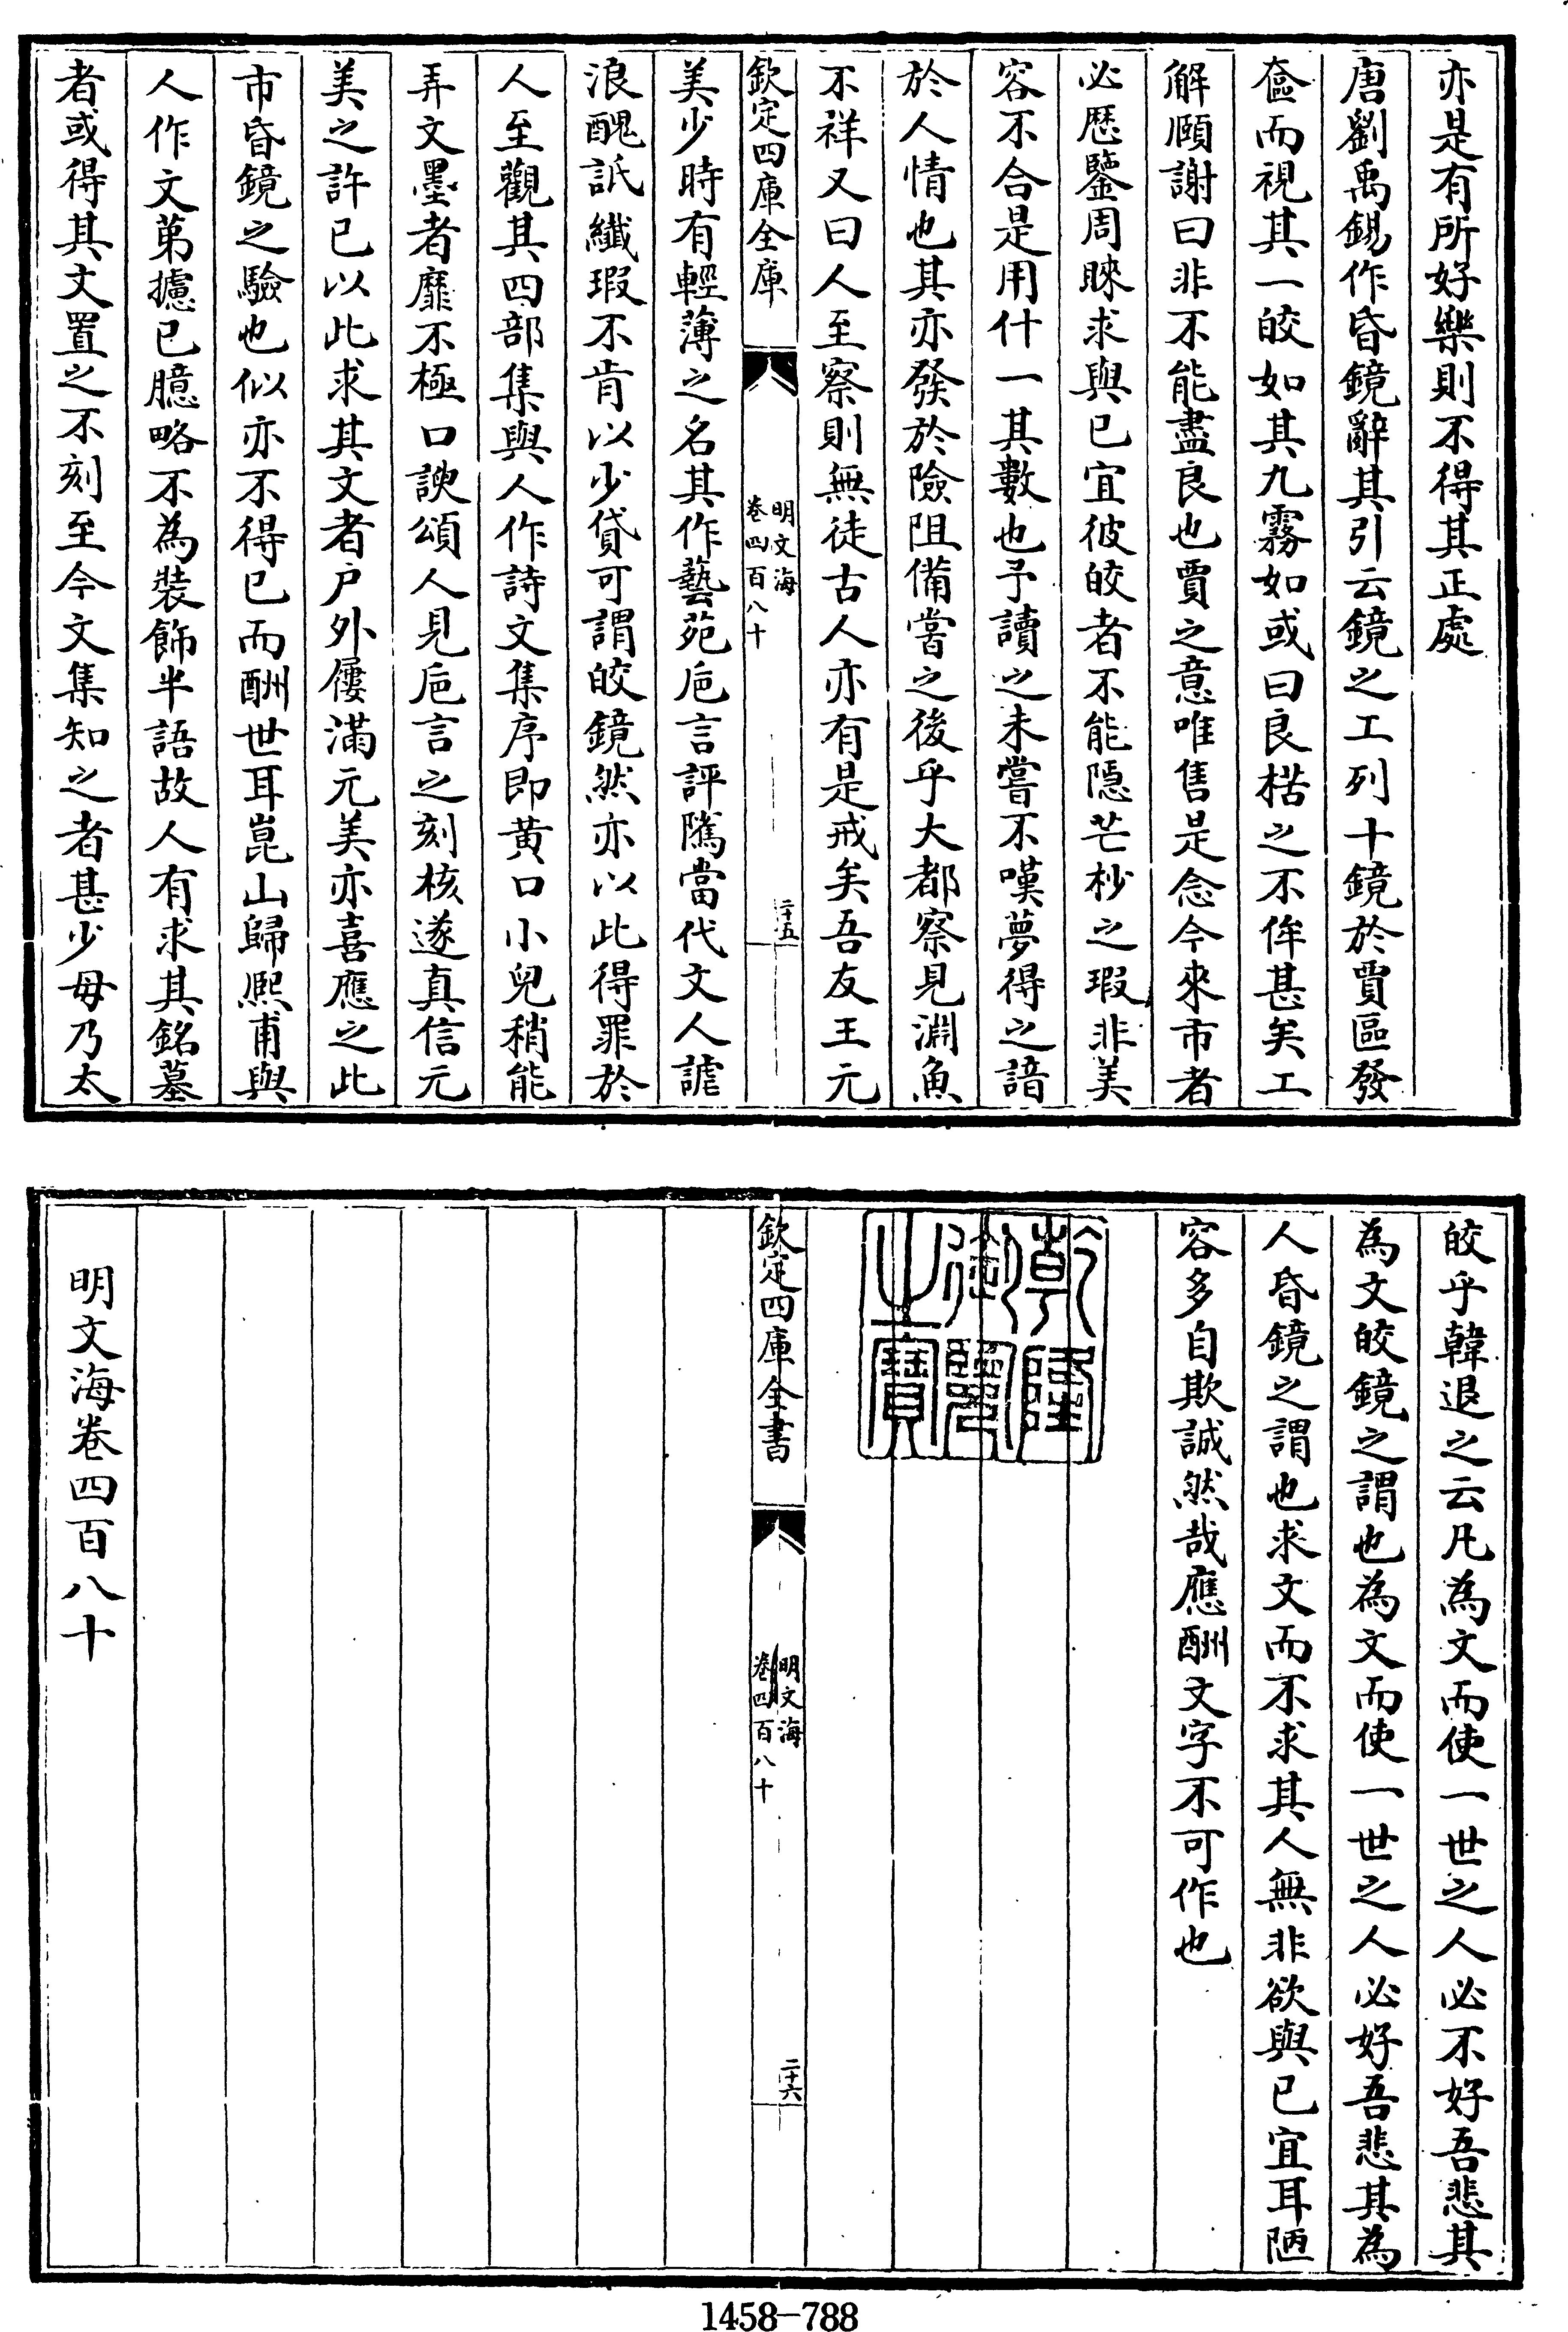 亦是有所好樂則不得其正處
唐劉禹錫作昏鏡辭其引云鏡之工列十鏡於賈區發
奩而視其一皎如其九霧如或曰良楛之不侔甚矣工
解頤謝曰非不能盡良也賈之意唯售是念今來市者
必歷鑒周睞求與已宜彼皎者不能隱芒杪之瑕非美
容不合是用什一其數也予讀之未嘗不嘆夢得之諳
於人情也其亦發於險阻備嘗之後乎大都察見淵魚
不祥又曰人至察則無徒古人亦有是戒矣吾友王元
欽定四庫全庫
明文海
卷四百八十
二十五
美少時有輕薄之名其作藝苑巵言評隲當代文人謔
浪醜詆纖瑕不肯以少貸可謂皎鏡然亦以此得罪於
人至觀其四部集與人作詩文集序即黄口小兒稍能
弄文墨者靡不極口諛頌人見巵言之刻核遂真信元
美之許已以此求其文者户外屨滿元美亦喜應之此
市昏鏡之驗也似亦不得已而酬世耳崑山歸熙甫與
人作文第攄已臆略不為裝飾半語故人有求其銘墓
者或得其文置之不刻至今文集知之者甚少毋乃太
皎乎韓退之云凡為文而使一世之人必不好吾悲其
為文皎鏡之謂也為文而使一世之人必好吾悲其為
人昏鏡之謂也求文而不求其人無非欲與已宜耳陋
容多自欺誠然哉應酬文字不可作也
乾隆御覽之寶
欽定四庫全書
明文海
卷四百八十
二十六
明文海卷四百八十
1458-788